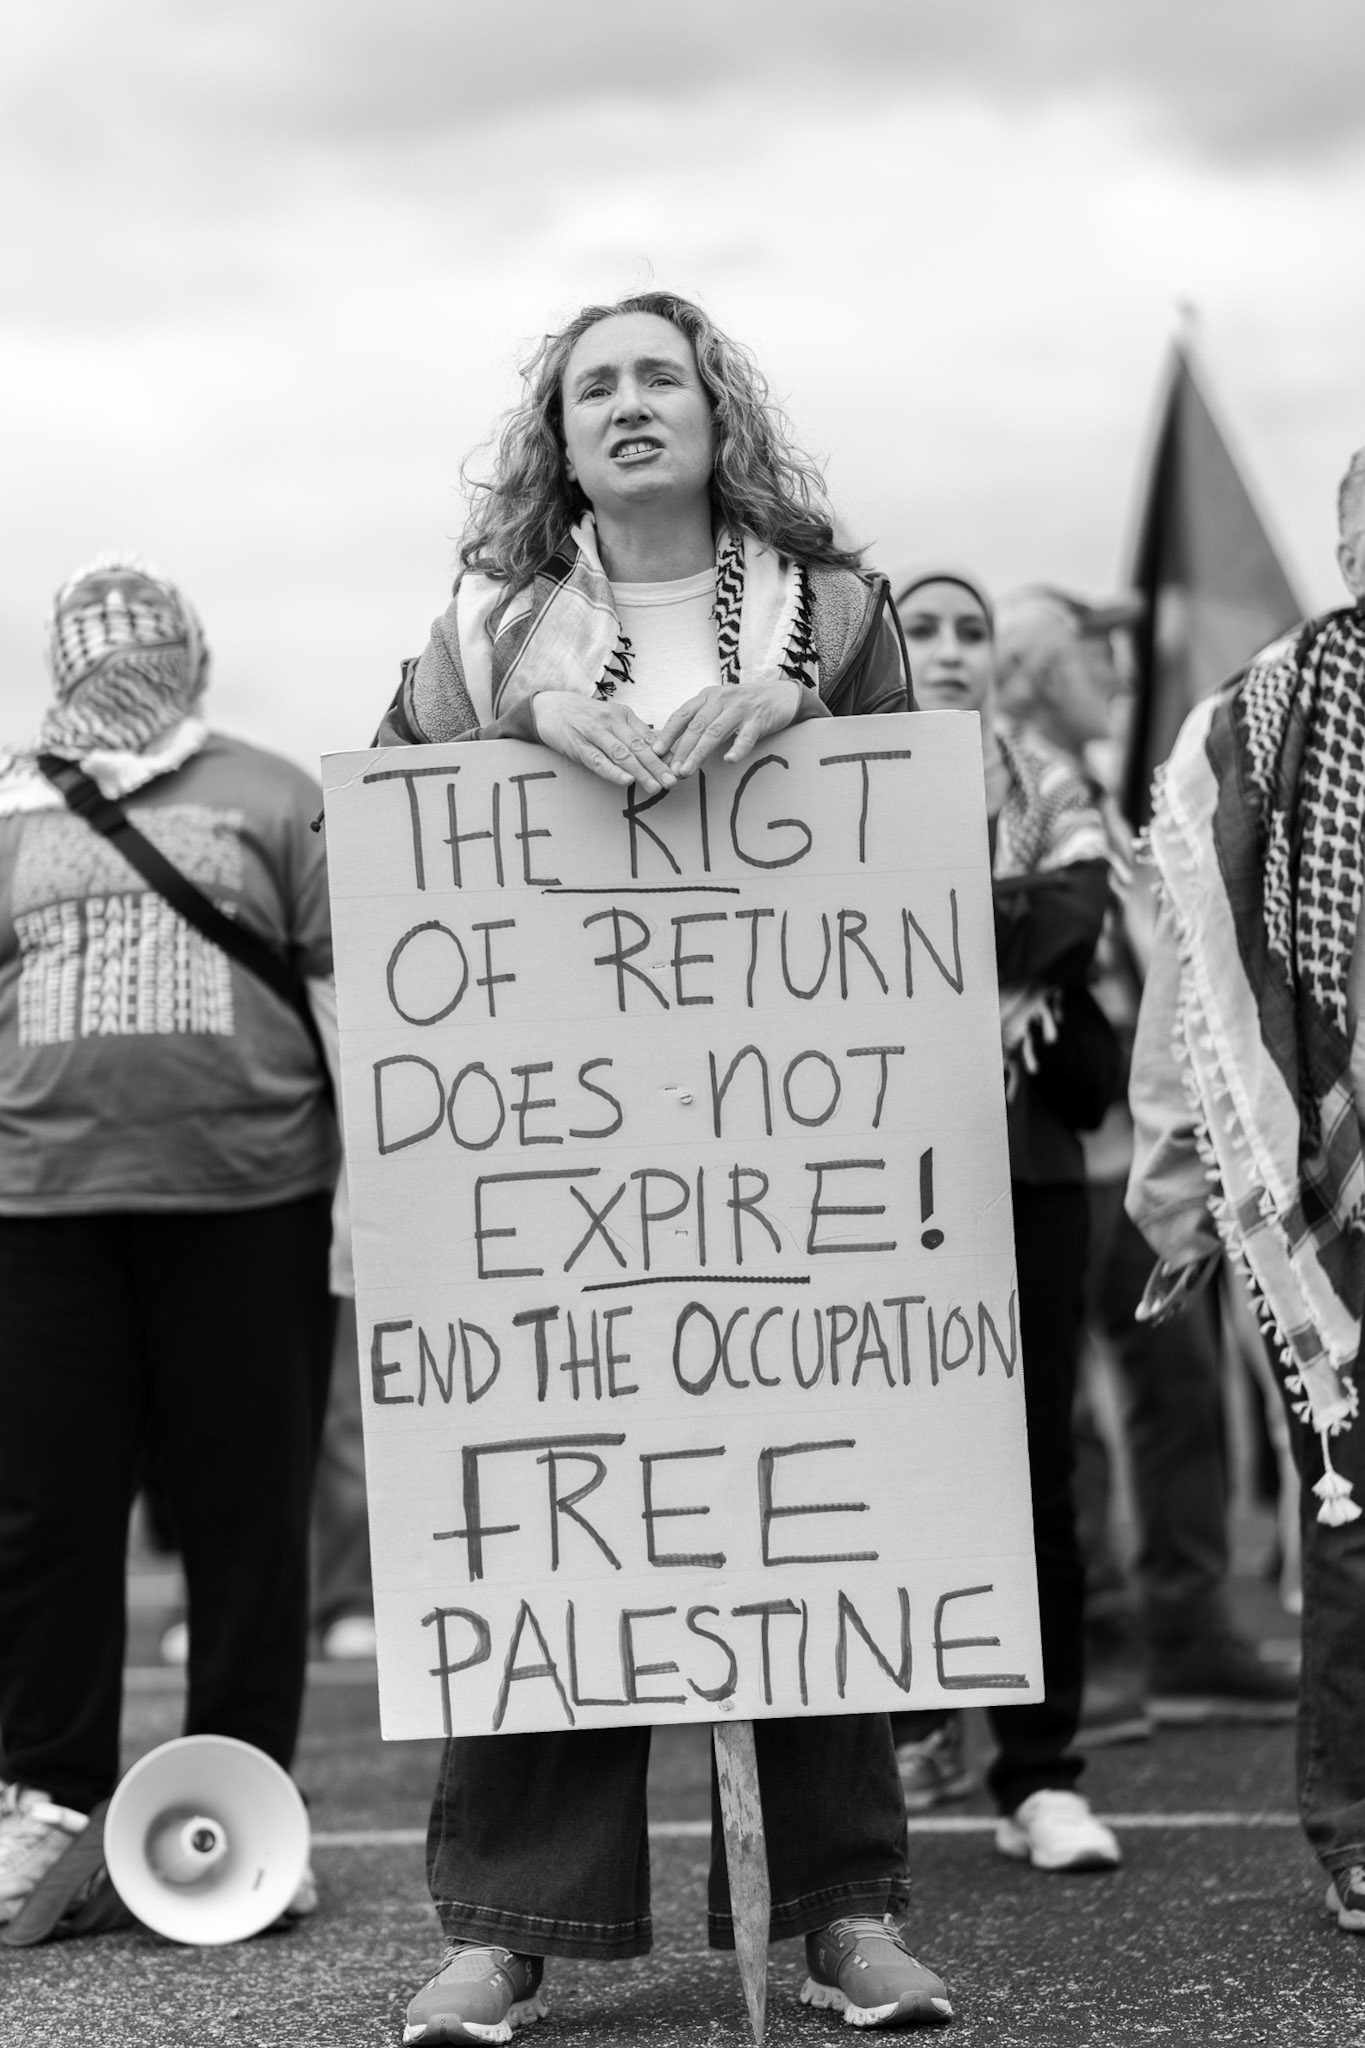 THE RIGT
OF RETURN
DOES NOT
EXPIRE!
END THE OCCUPATION
FREE
PALESTINE
FREE PALESTINE
FREE PALESTINE
FREE PALESTINE
FREE PALESTINE
FREE PALESTINE